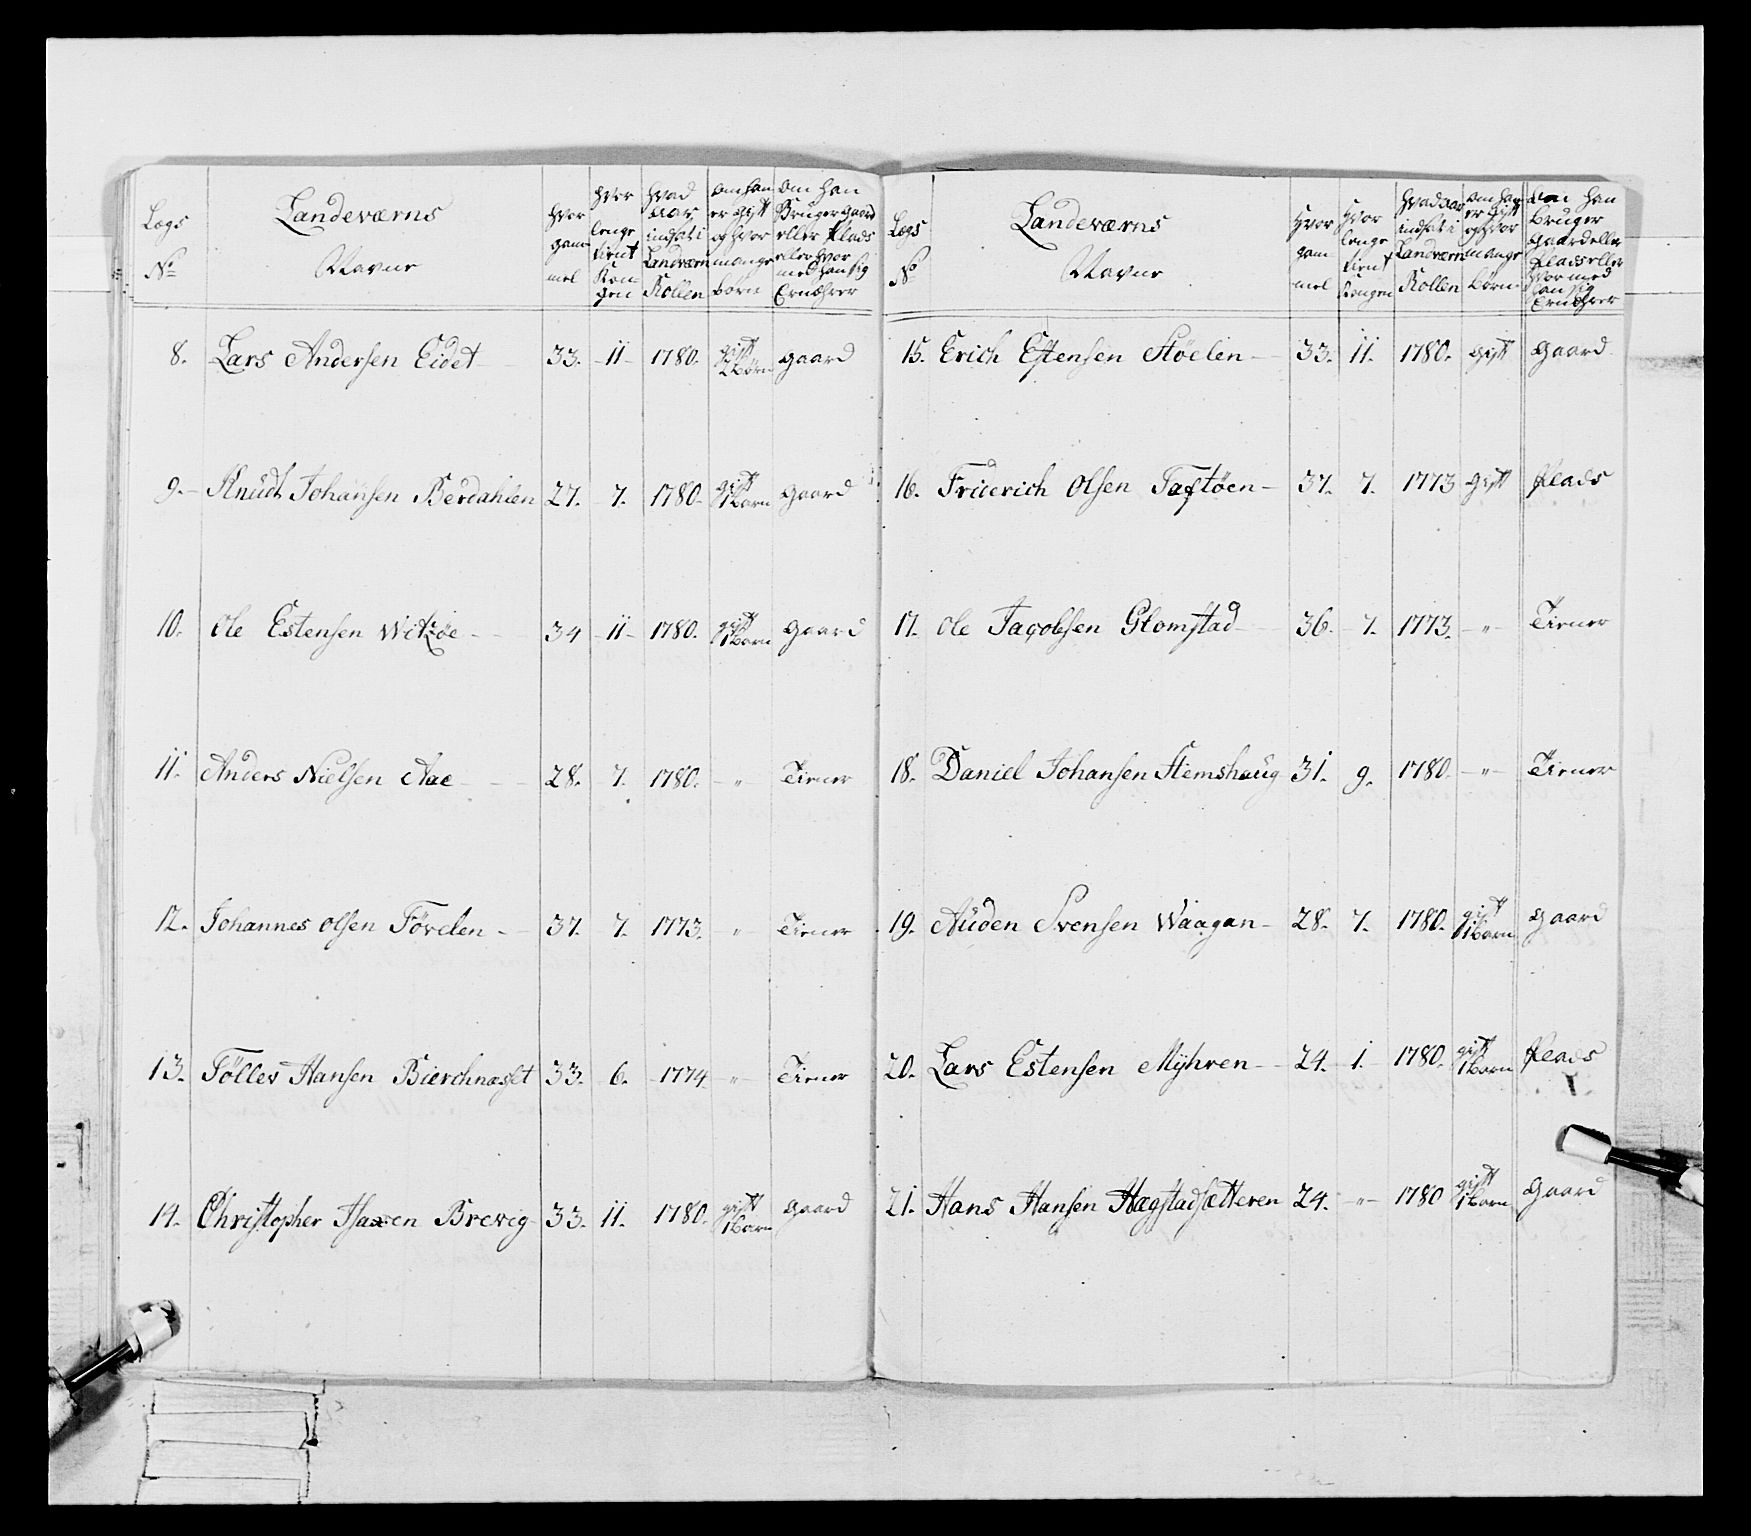 Lægs Landeværns Hvor Hvor Hvad om han om han
No Navne gam- lenge aar er gift Bruger gaard
mel tient indsat i og hvor eller Plads
Kon- Landværn mange eller hvor
gen Rollen børn med han sig
Ernährer
8. Lars Andersen Eidet 33. 11 1780. gift 2 børn gaard
9. Knudt Johansen Berdahlen 27. 7. 1780. gift 1 barn gaard
10. Ole Estensen Witzøe 34 11 1780. gift 1 barn gaard
11. Anders Nielsen Aae 28. 7. 1780. " Tiener
12. Johannes Olsen Förelen 37. 7. 1773. " Tiener
13. Föller Hansen Bierchnæsset 33. 6. 1774 " Tiener
14. Christopher Isaxen Brevig 33. 11. 1780. gift 1 barn gaard
Lægs Landeværns Hvor Hvor Hvad aar om han om han
No Navne gam- lenge indsat i er gift Bruger
mel tient Landværn og hvor Gaard eller
Kongen Rollen mange Plads eller
børn hvor med
han sig
Ernährer
15. Erich Estensen Støelen 33. 11. 1780. gift Gaard
16. Friderich Olsen Taftöen 37. 7. 1773 gift Plads
17. Ole Jacobsen Glomstad 36. 7. 1773. " Tiener
18. Daniel Johansen Hemshaug 31. 9. 1780. " Tiener
19. Auden Svensen Waagan 28. 7. 1780. gift 1 barn Gaard
20. Lars Estensen Myhren 24. 1. 1780. gift 1 barn Plads
21. Hans Hansen Hægstadsætteren 24. " 1780 gift 1 barn Gaard